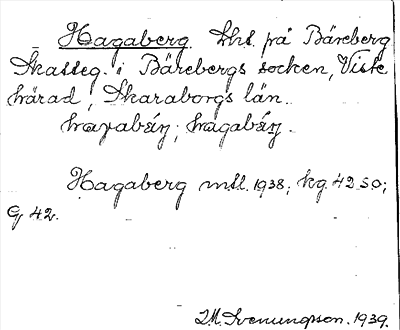 Hagaberg Lht. på Bäreberg
Skatteg. i Bärebergs socken, Viste
härad, Skaraborgs län.
Hagaberg mtl. 1938; kg. 42 SO;
G 42.
Svenungsson. 1939.